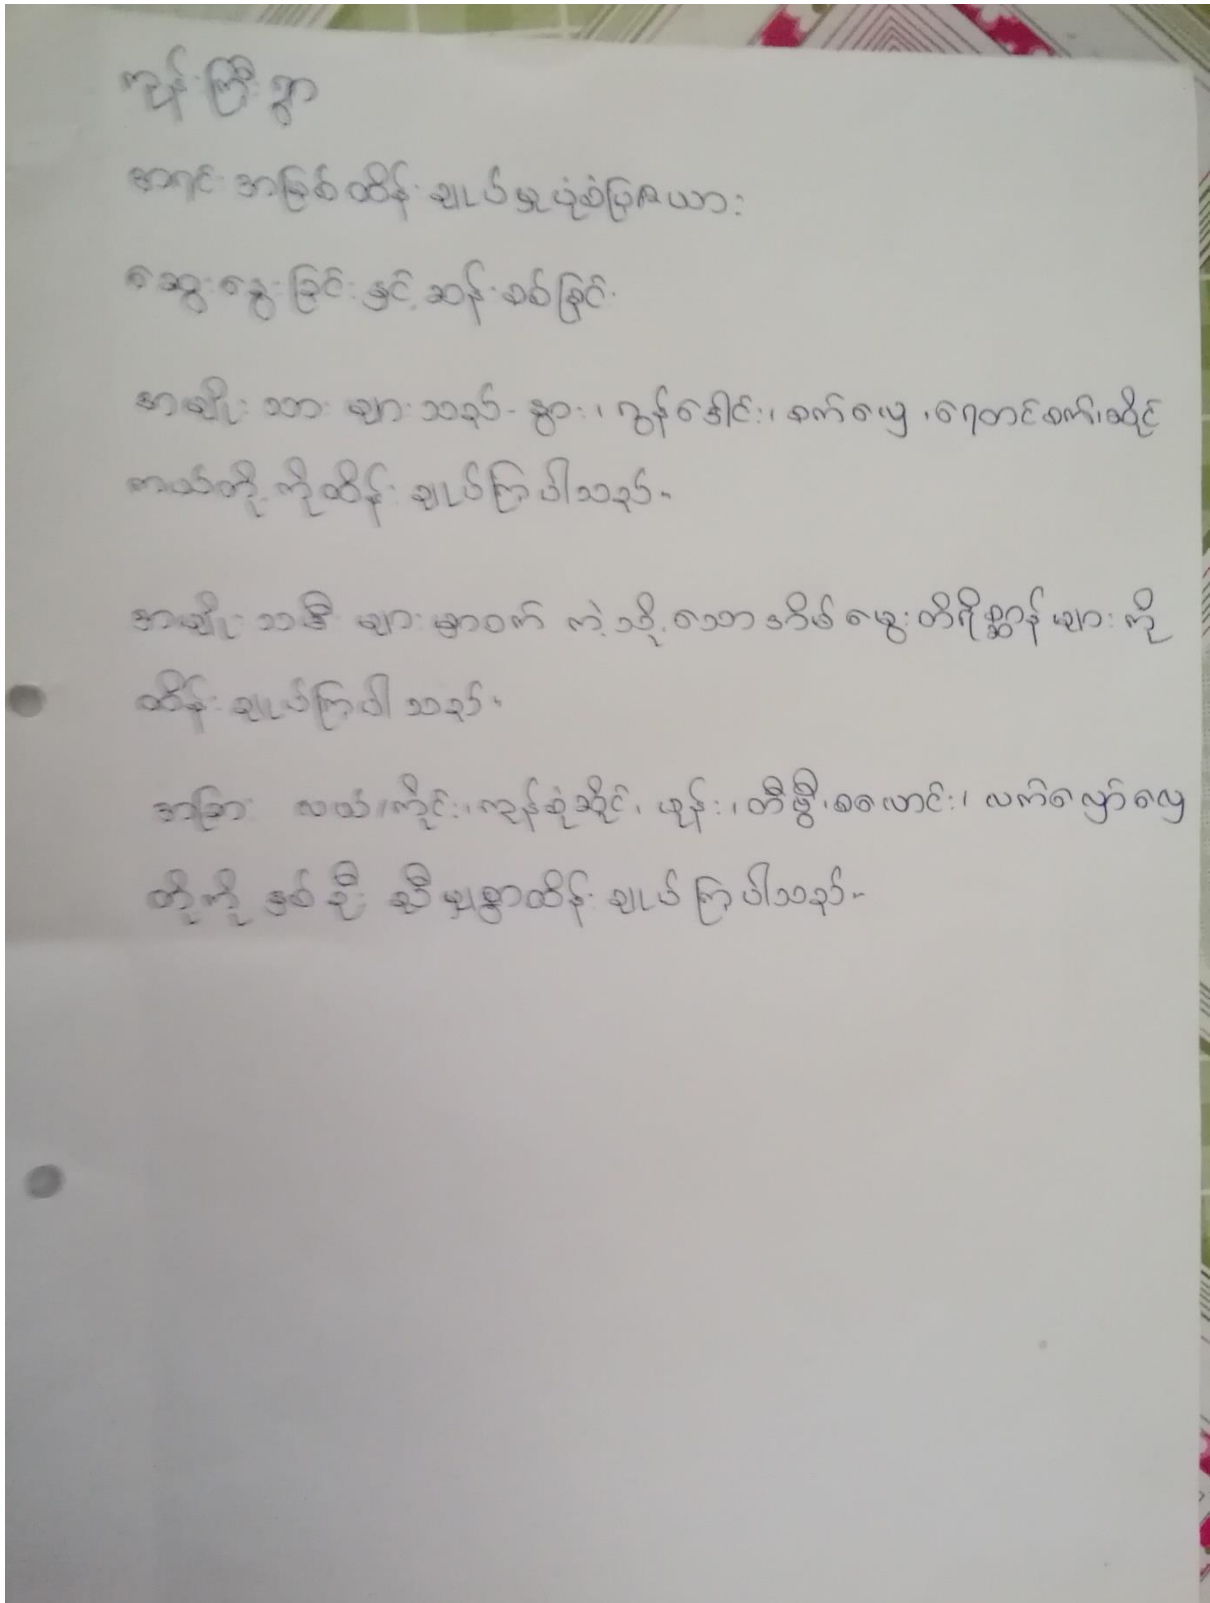 ကျွန်းကြီးရွာ
အရင်းအမြစ်ထိန်းချုပ်မှုပုံစံပြဇယား
ဆွေးနွေးခြင်းနှင့်ဆန်းစစ်ခြင်း
အမျိုးသားများသည် နွား၊ ထွန်ခေါင်း၊ စက်လှေ၊ ရေတင်စက်၊ ဆိုင်
ကယ်တို့ကိုထိန်းချုပ်ကြပါသည်။
အမျိုးသမီးများမှာဝက် ကဲ့သို့သောအိမ်မွေးတိရိစ္ဆာန်များကို
ထိန်းချုပ်ကြပါသည်။
အခြား လယ်၊ ကိုင်း၊ ကုန်စုံဆိုင်၊ ဖုန်း၊ တီဗွီ၊ စလောင်း၊ လက်လှော်လှေ
တို့ကို နှစ်ဦးညီမျှစွာထိန်းချုပ်ကြပါသည်။